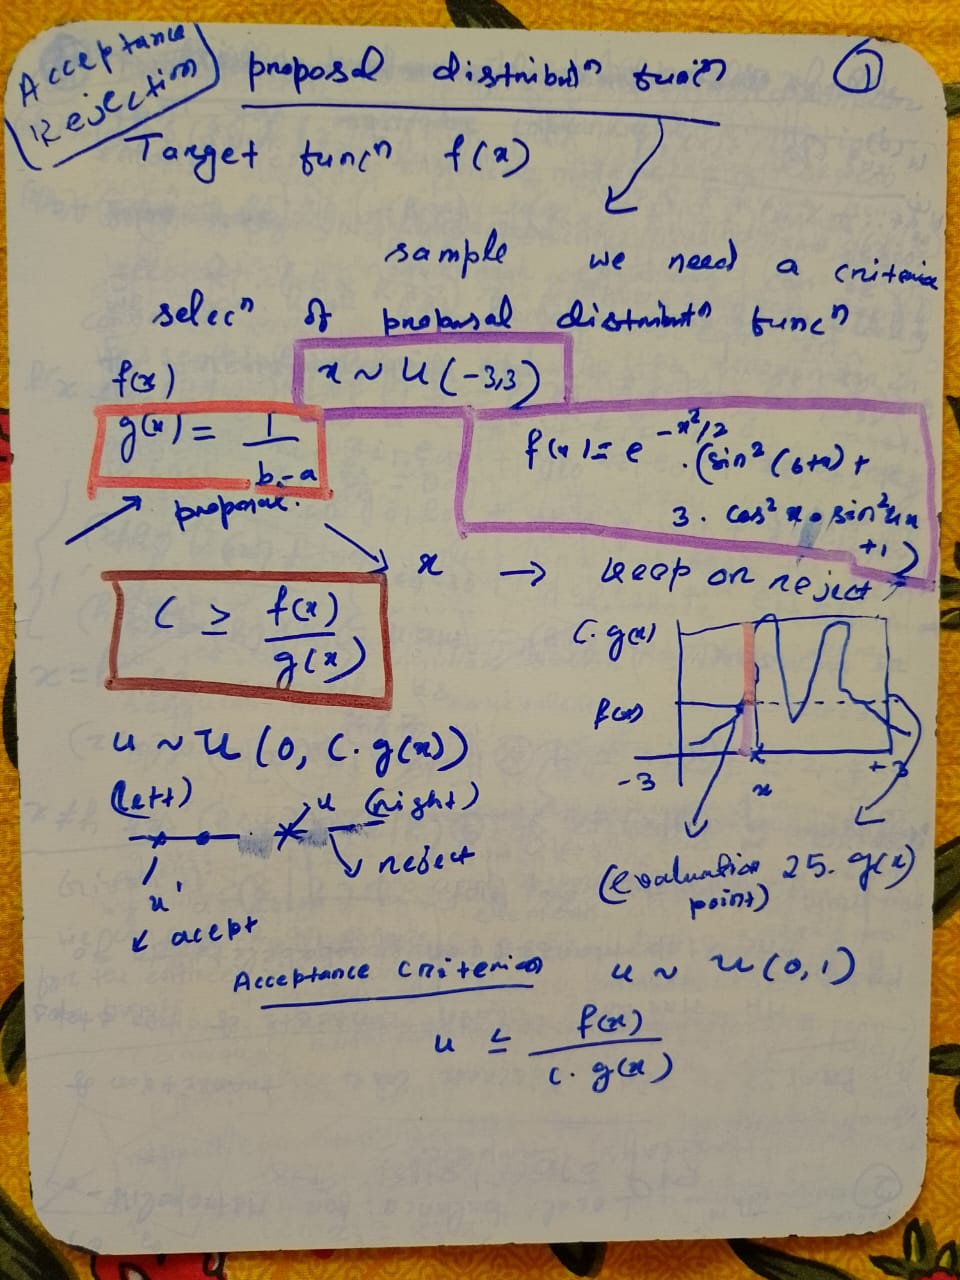 Acceptance
Rejection
proposal distribnⁿ funcⁿ
1
Target funcⁿ f(x)
sample we need a criteria
selecⁿ of proposal distributⁿ funcⁿ
f(x)
x ~ U(-3,3)
g(x) = 1/(b-a)
proposal.
f(x) = e^(-x²/2) . (sin²(6+x) +
3. cos² x . sin² 4x
+1)
x → keep or reject
C ≥ f(x)/g(x)
C. g(x)
f(x)
-3
x
+3
u ~ U(0, C. g(x))
(left)
u
(right)
reject
u
accept
(evaluation 25. g(x)
point)
Acceptance criterion
u ~ U(0,1)
u ≤ f(x)/(C. g(x))